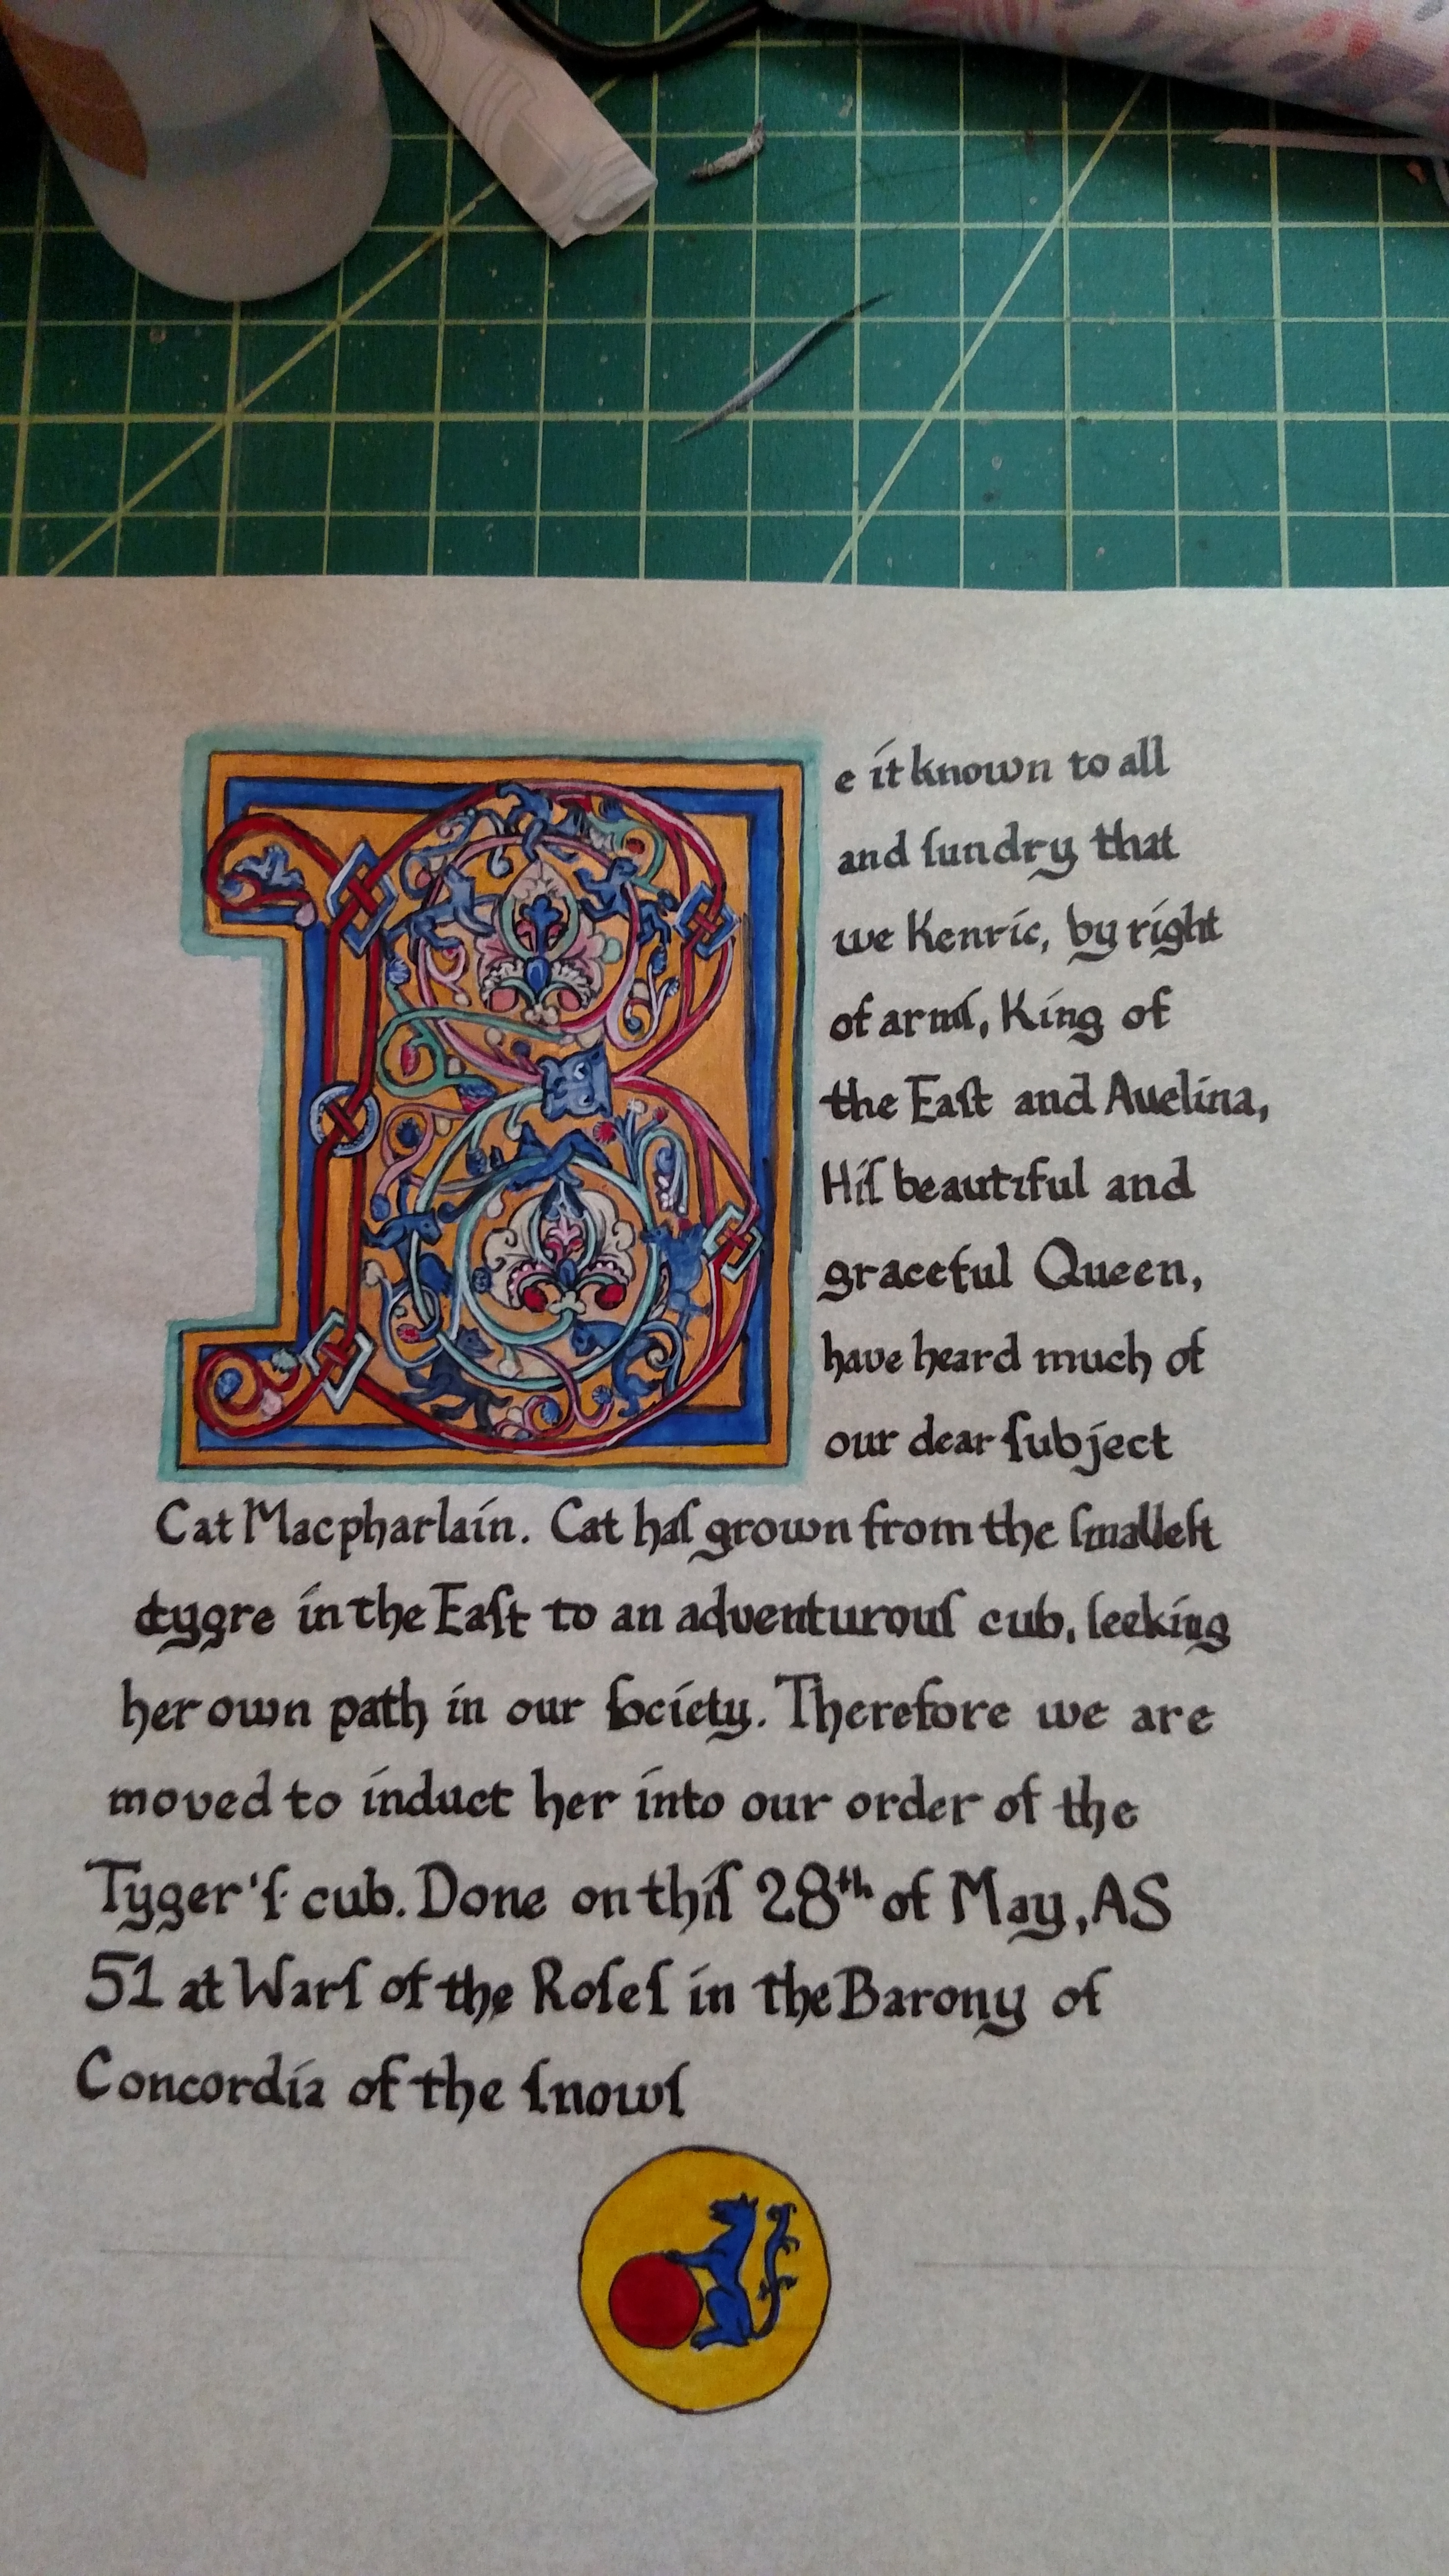 Be it known to all
and ſundry that
we Kenric, by right
of armſ, King of
the Eaſt and Avelina,
Hiſ beautiful and
graceful Queen,
have heard much of
our dear ſubject
Cat Macpharlain. Cat haſ grown from the ſmalleſt
tygre in the Eaſt to an adventurouſ cub, ſeeking
her own path in our ſociety. Therefore we are
moved to induct her into our order of the
Tyger'ſ cub. Done on thiſ 28th of May, AS
51 at Warſ of the Roſeſ in the Barony of
Concordia of the ſnowſ